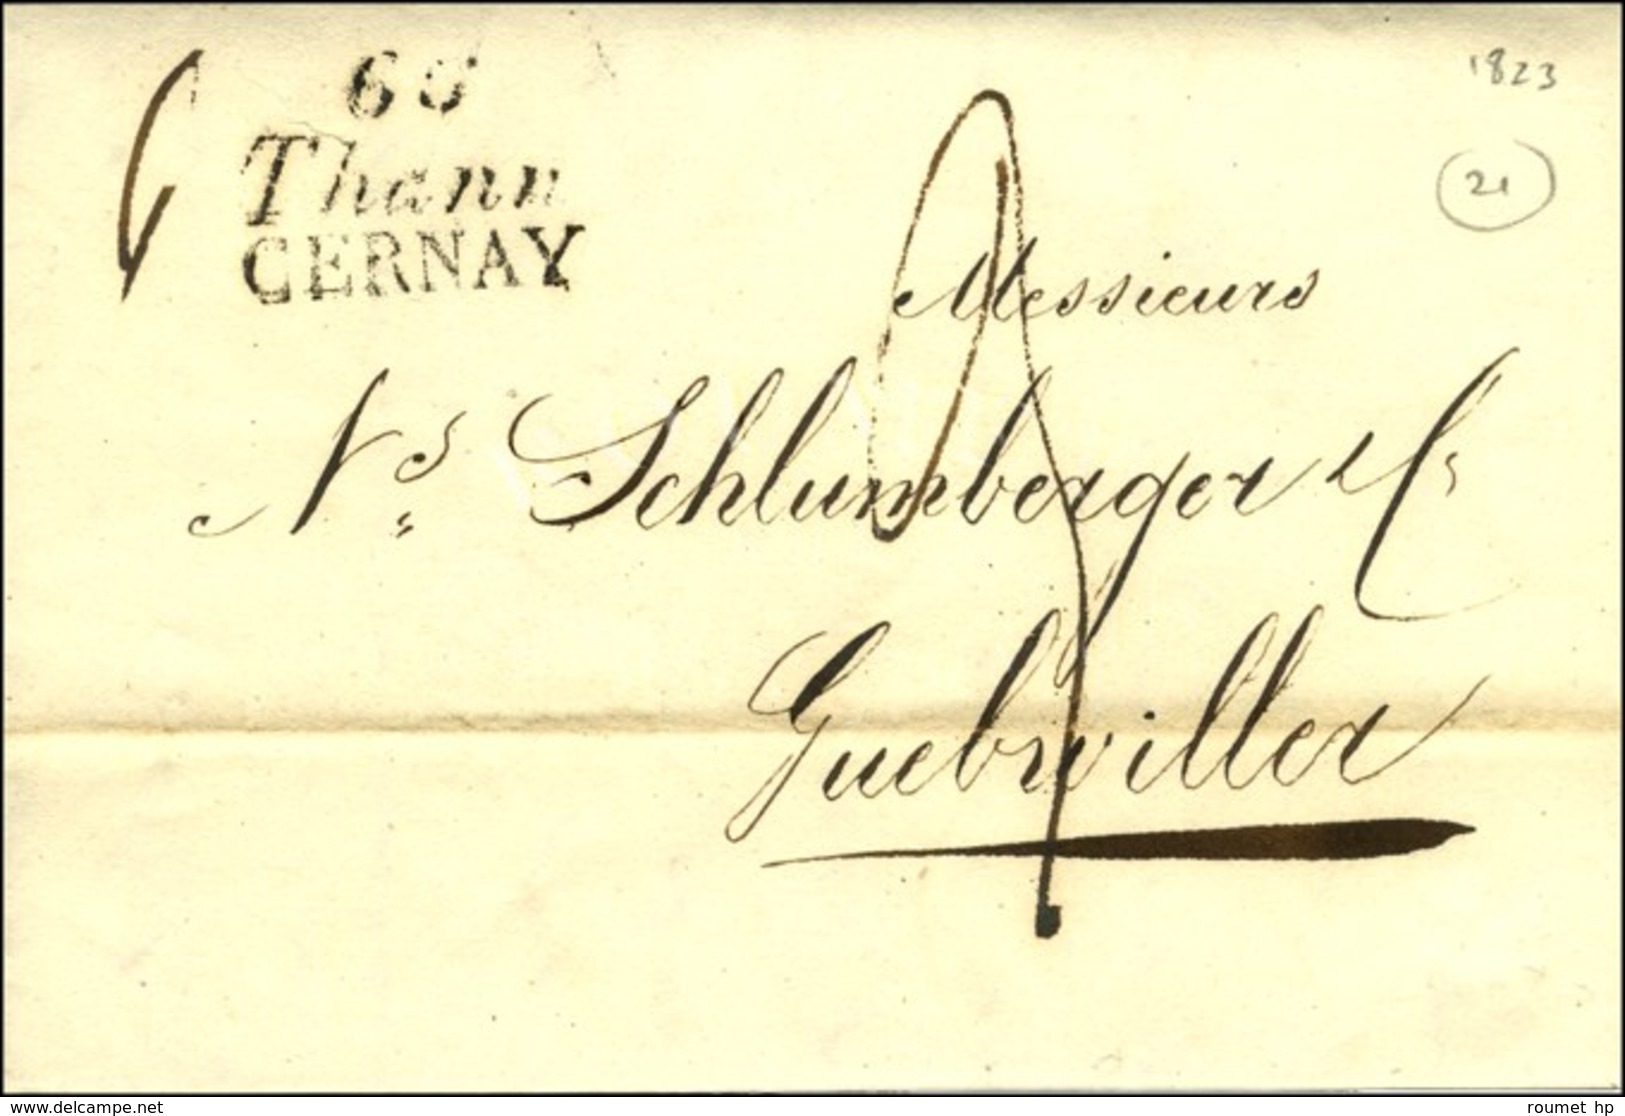 1823
66
Thann
CERNAY
21
Messieurs
Ns. Schlumberger & Cie
Guebwiller
www.delcampe.net
roumet hp